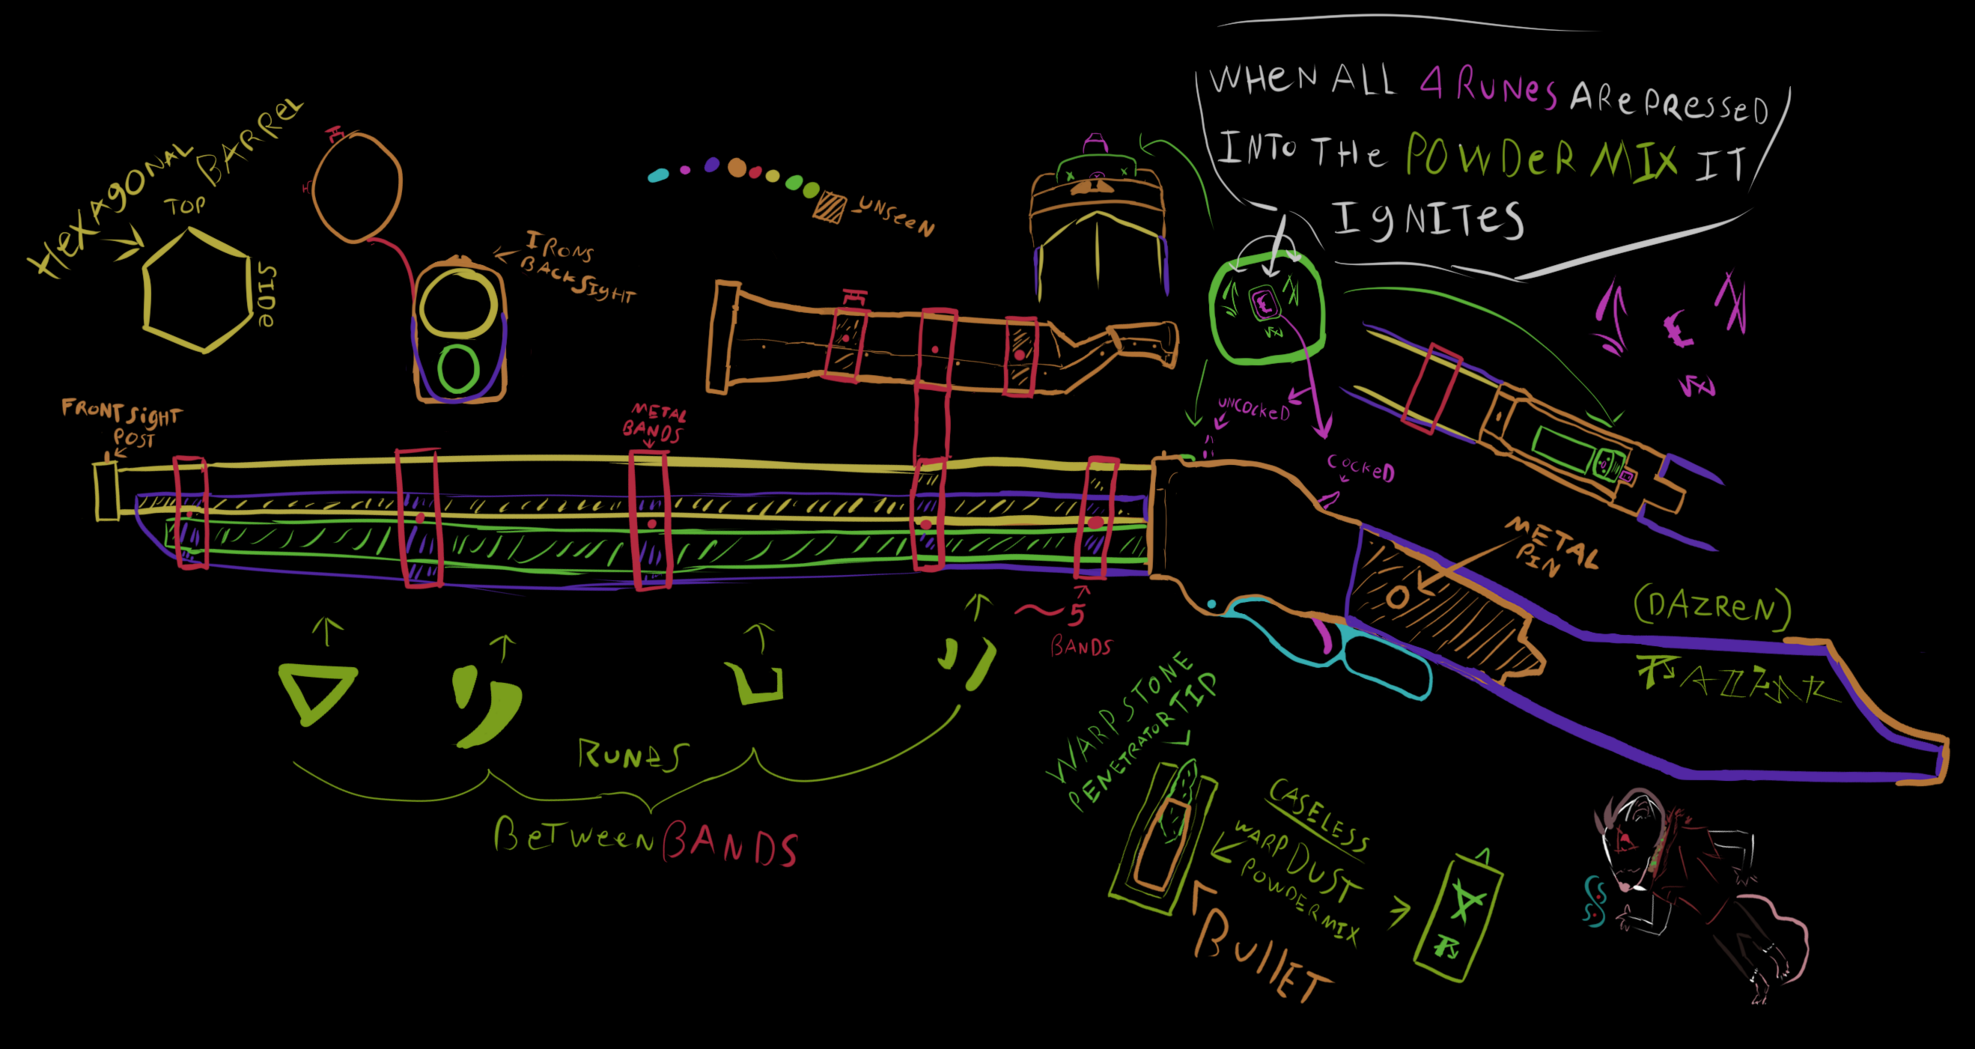 WHEN ALL 4 RUNES ARE PRESSED
INTO THE POWDER MIX IT
IGNITES
HEXAGONAL
BARREL
TOP
SIDE
IRONS
BACKSIGHT
UNSEEN
FRONT SIGHT
POST
METAL
BANDS
UNCOCKED
COCKED
METAL
PIN
~5
BANDS
(DAZREN)
RUNES
BETWEEN BANDS
WARPSTONE
PENETRATOR TIP
CASELESS
WARP DUST
POWDER MIX
BULLET